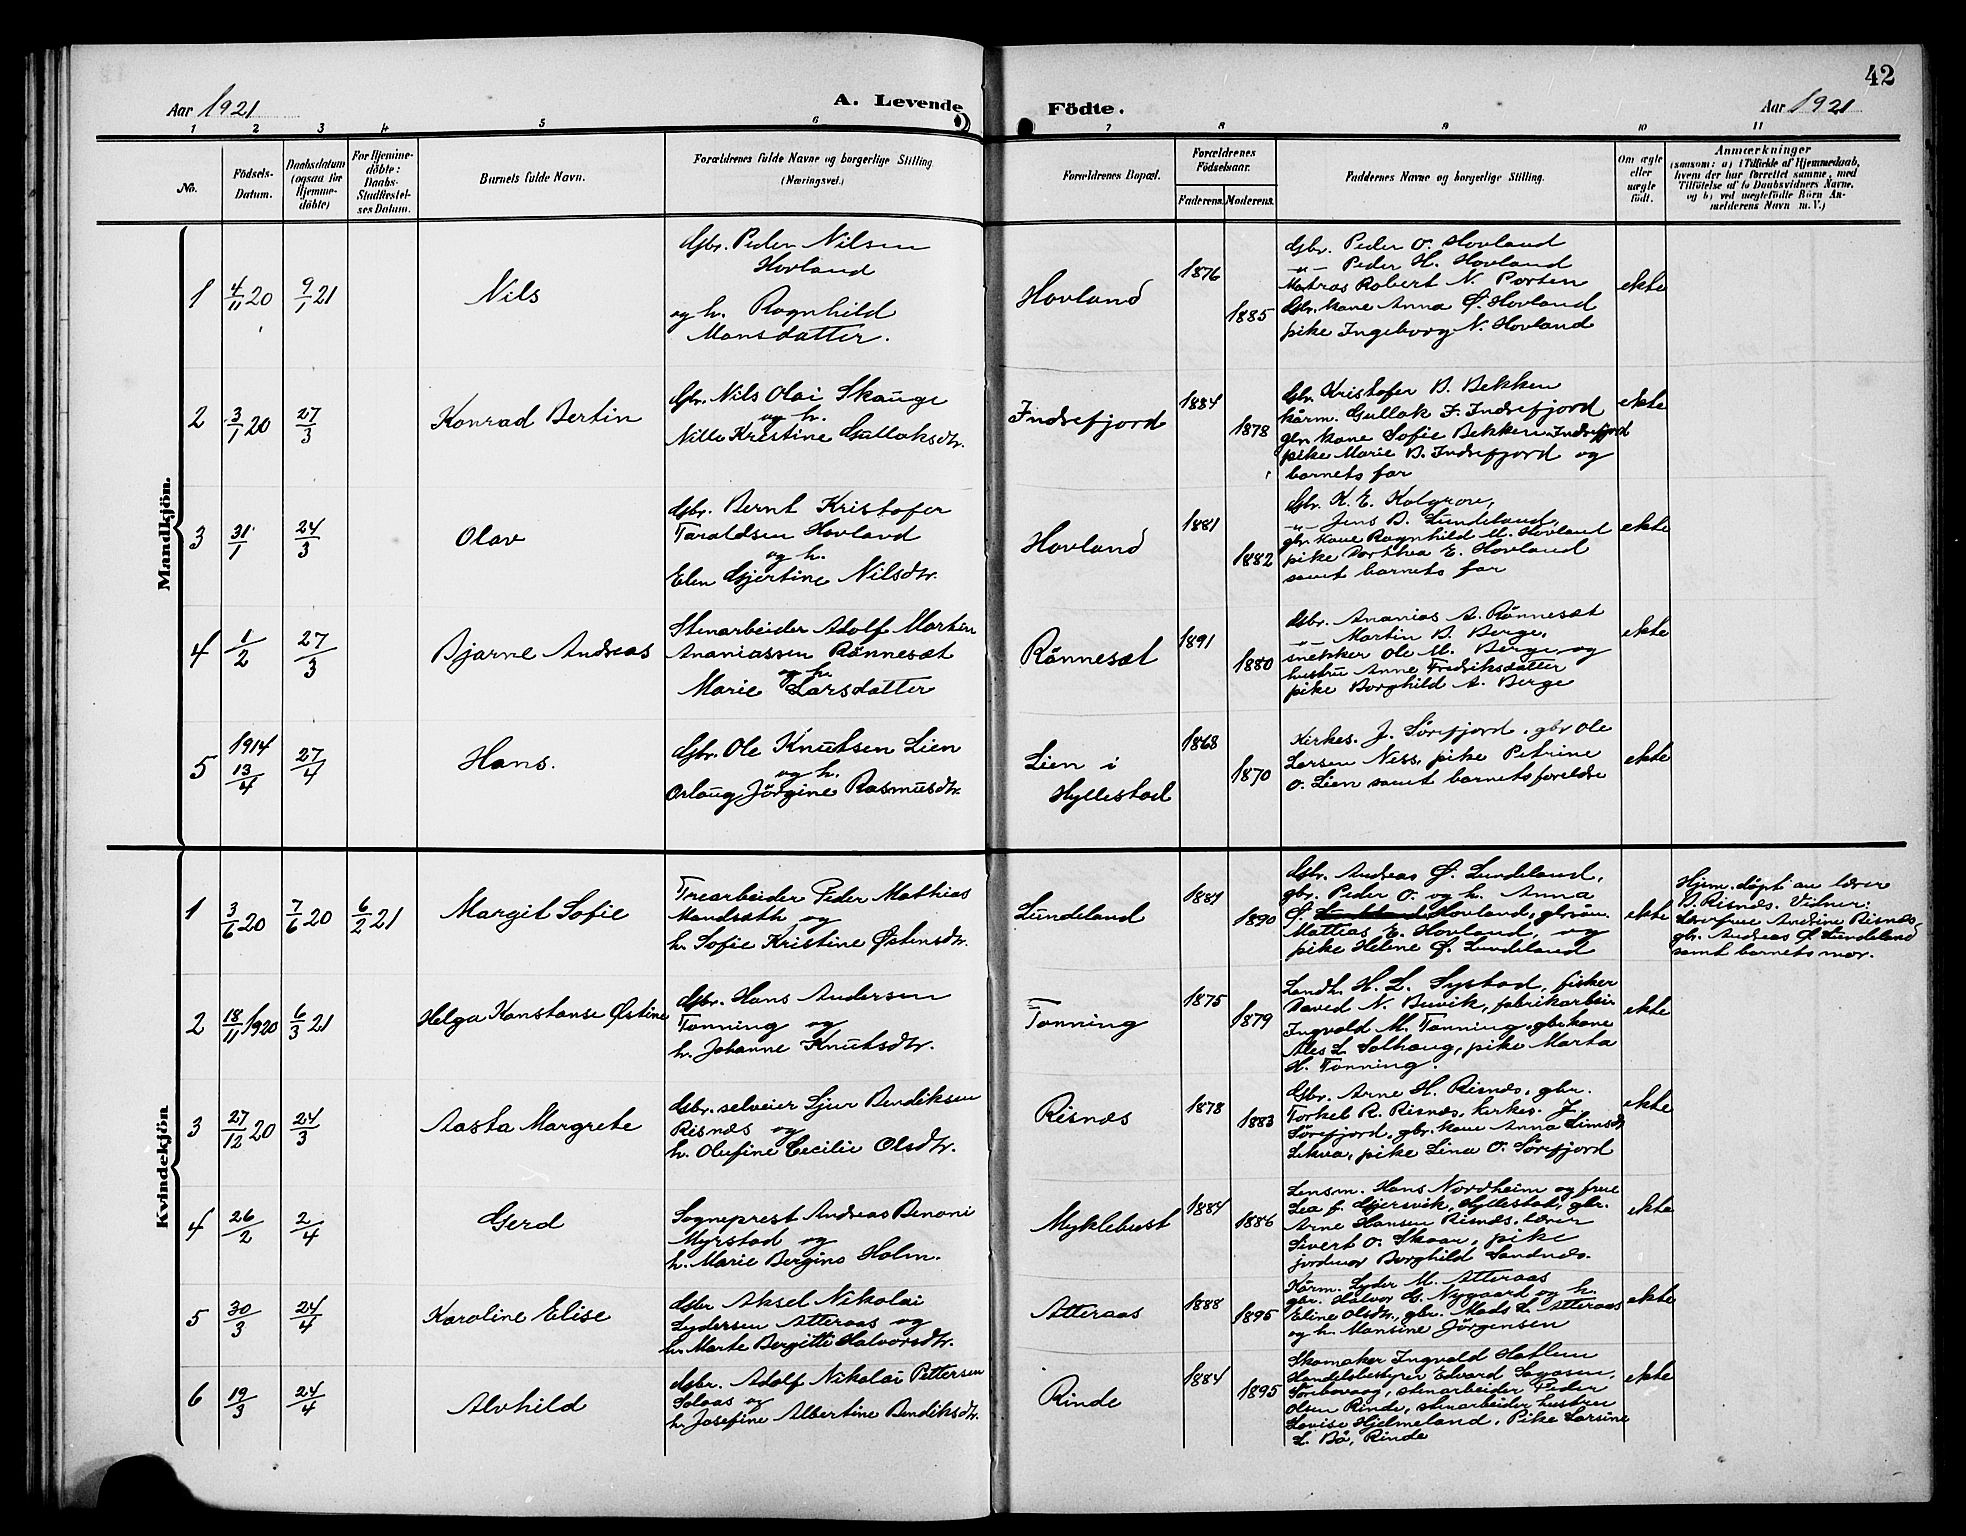 42
Aar 1921
A. Levende Födte.
Aar 1921
1 2 3 4 5 6 7 8 9 10 11
No.
Födsels-Datum.
Daabsdatum (ogsaa for Hjemme-döbte)
For Hjemme-döbte: Daabs-Stadfæstel-ses Datum.
Barnets fulde Navn.
Forældrenes fulde Navne og borgerlige Stilling.
(Næringsvei.)
Forældrenes Bopæl.
Forældrenes Födselsaar.
Faderens. Moderens.
Faddernes Navne og borgerlige Stilling.
Om ægte eller uægte födt.
Anmærkninger
(saasom: a) i Tilfælde af Hjemmedaab,
hvem der har forrettet samme, med
Tilföielse af to Daabsvidners Navne,
og b) ved uægtefödte Börn An-
melderens Navn m. V.)
Mandkjön.
1 4/11 20 9/1 21 Nils
Gbr. Peder Nilsen
Hovland
og h. Ragnhild
Monsdatter.
Hovland 1876 1885
Gbr. Peder O. Hovland
-"- Peder H. Hovland
Matros Robert N. Porten
Gbr. kone Anna Ø. Hovland
pike Ingeborg N. Hovland
ekte
2 3/1 20 27/3 Konrad Bertin
Gbr. Nils Olai Skauge
og h.
Nille Kristine Gullaksdtr.
Indrefjord 1884 1878
Gbr. Kristofer B. Bekken
kårm. Gullak F. Indrefjord
gbr. kone Sofie Bekken Indrefjord
pike Marie B. Indrefjord og
barnets far
ekte
3 31/1 24/3 Olav
Gbr. Bernt Kristofer
Taraldsen Hovland
og h.
Elen Gjertine Nilsdtr.
Hovland 1881 1882
Gbr. K. E. Kolgrov,
-"- Jens B. Lundeland,
gbr. kone Ragnhild M. Hovland
pike Dorthea E. Hovland
samt barnets far
ekte
4 1/2 27/3 Bjarne Andreas
Stenarbeider Adolf Martin
Ananiassen Rönneset
og h.
Marie Larsdatter
Rönneset 1891 1880
Gbr. Ananias A. Rönneset
-"- Martin B. Berge,
snekker Ole M. Berge og
hustru Anne Fredriksdatter
pike Borghild A. Berge
ekte
5 1914 13/4 27/4 Hans.
Gbr. Ole Knutsen Lien
og h.
Orlaug Jörgine Rasmusdtr.
Lien i
Hyllestad
1868 1870
Kirkes. J. Sörefjord, gbr Ole
Larsen Ness, pike Petrine
O. Lien samt barnets foreldre
ekte
Kvindekjön
1 3/6 20 7/6 20 6/2 21 Margit Sofie
Trearbeider Peder Mathias
Mandsæth og
h. Sofie Kristine Østensdtr.
Lundeland 1889 1890
Gbr. Andreas Ø. Lundeland,
gbr. Peder O. og h. Anna
Ø. Hovland, gbrsön.
Mattias E. Hovland, og
pike Helene Ø. Lundeland
ekte
Hjem. döpt av lærer
B. Risnes. Vidner:
Lærerfrue Andrine Risnes,
gbr. Andreas Ø. Lundeland
samt barnets mor.
2 18/11 1920 6/3 21 Helga Konstanse Østine
Gbr. Hans Andersen
Tonning og
h. Johanne Knutsdtr.
Tonning 1875 1879
Landh. H. L. Systad, fisker
David N. Buvik, fabrikarbeir
Ingvald M. Tonning, gbr. kone
Ales L. Solhaug, pike Marta
H. Tonning.
ekte
3 27/12 20 24/3 Aasta Margrete
Gbr. selveier Sjur Bendiksen
Risnes og
h. Olufine Cecilie Olsdtr.
Risnes 1878 1883
Gbr. Arne H. Risnes, gbr.
Torkel R. Risnes, kirkes. J.
Sörefjord, gbr. kone Anna Simsdr
Lekva, pike Lina O. Sörefjord
ekte
4 26/2 2/4 Gerd
Sogneprest Andreas Benoni
Myrstad og
h. Marie Bergine Holm.
Myklebust 1884 1886
Lensm. Hans Nordheim og frue
Lea f. Gjersvik, Hyllestad, gbr.
Arne Hansen Risnes, lærer
Sivert O. Skaar, pike
jordmor Borghild Sandnes.
ekte
5 30/3 24/4 Karoline Elise
Gbr Aksel Nikolai
Lydersen Atteraas og
h. Marte Bergitte Halvorsdtr.
Atteraas 1888 1895
Kårm. Lyder M. Atteraas
gbr. Halvor G. Nygaard og h.
Eline Olsdtr., gbr. Mads L. Atteraas
og h. Mansine Jörgensen
ekte
6 19/3 24/4 Alvhild
Gbr. Adolf Nikolai Pettersen
Solaas og
h. Josefine Albertine Bendiksdtr.
Rinde 1884 1895
Skomaker Ingvald Hatlem
Handelsbestyrer Edvard
Sörebovaag, stenarbeider Peder
Olsen Rinde, stenarbeider hustru
Lovise Hjelmeland, Pike Larsine
L. Bö, Rinde
ekte